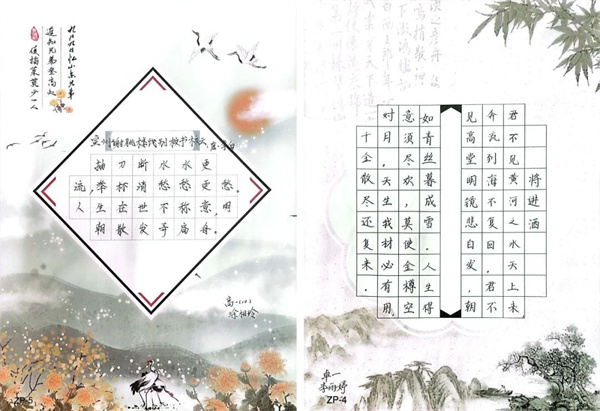 九月九日忆山东兄弟
遥知兄弟登高处
遍插茱萸少一人
宣州谢朓楼饯别校书叔云 唐·李白
抽刀断水水更
流,举杯消愁愁更愁.
人生在世不称意,明
朝散发弄扁舟.
ZP-5
将进酒
君不见黄河之水天上来
奔流到海不复回,君不
见高堂明镜悲白发,朝
如青丝暮成雪.人生得
意须尽欢,莫使金樽空
对月.天生我材必有用,
千金散尽还复来.
李雨婷
ZP-4